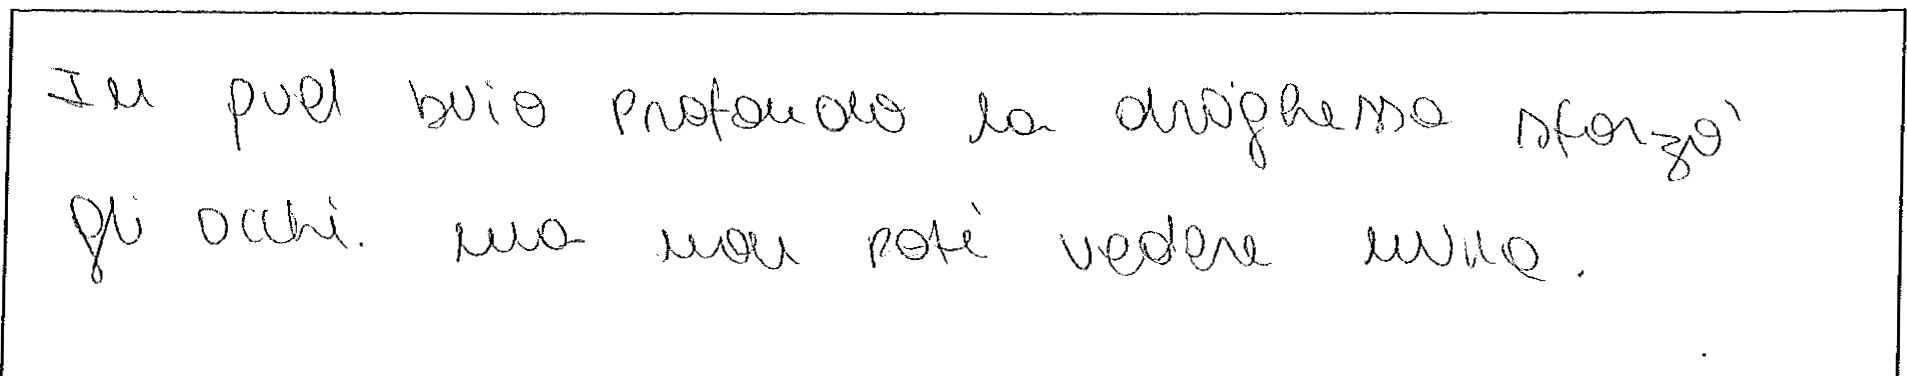 In quel buio profondo la draghessa sforzò
gli occhi. ma non poté vedere nulla.